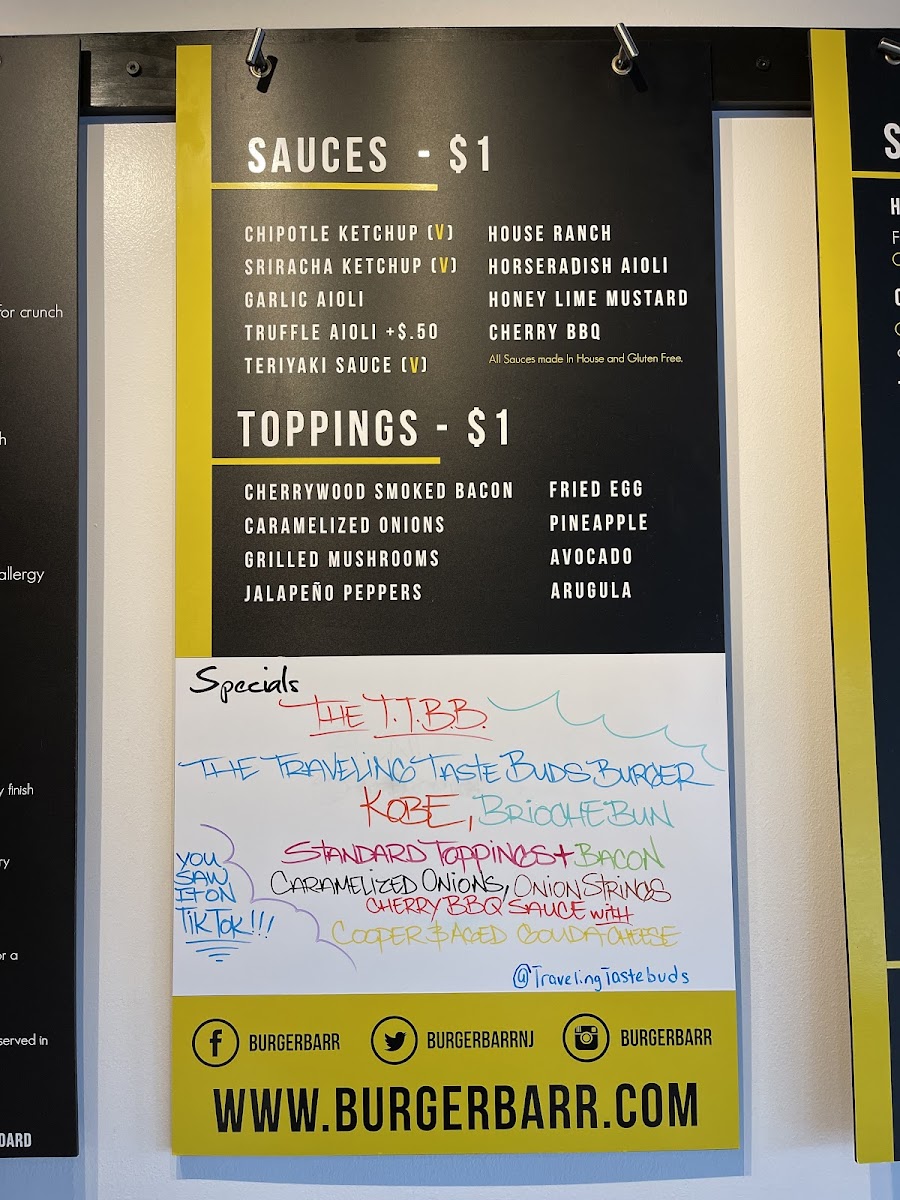 for crunch
h
allergy
y finish
ry
or a
served in
OARD
SAUCES - $1
CHIPOTLE KETCHUP (V)
SRIRACHA KETCHUP (V)
GARLIC AIOLI
TRUFFLE AIOLI +$.50
TERIYAKI SAUCE (V)
HOUSE RANCH
HORSERADISH AIOLI
HONEY LIME MUSTARD
CHERRY BBQ
All Sauces made In House and Gluten Free.
TOPPINGS - $1
CHERRYWOOD SMOKED BACON
CARAMELIZED ONIONS
GRILLED MUSHROOMS
JALAPEÑO PEPPERS
FRIED EGG
PINEAPPLE
AVOCADO
ARUGULA
Specials
THE T.T.B.B.
THE TRAVELING TASTE BUDS BURGER
KOBE, BRIOCHE BUN
STANDARD TOPPINGS + BACON
CARAMELIZED ONIONS, ONION STRINGS
CHERRY BBQ SAUCE with
COOPER & AGED GOUDA CHEESE
YOU
SAW
IT ON
TikTok!!!
@TravelingTastebuds
BURGERBARR
BURGERBARRNJ
BURGERBARR
WWW.BURGERBARR.COM
S
H
F